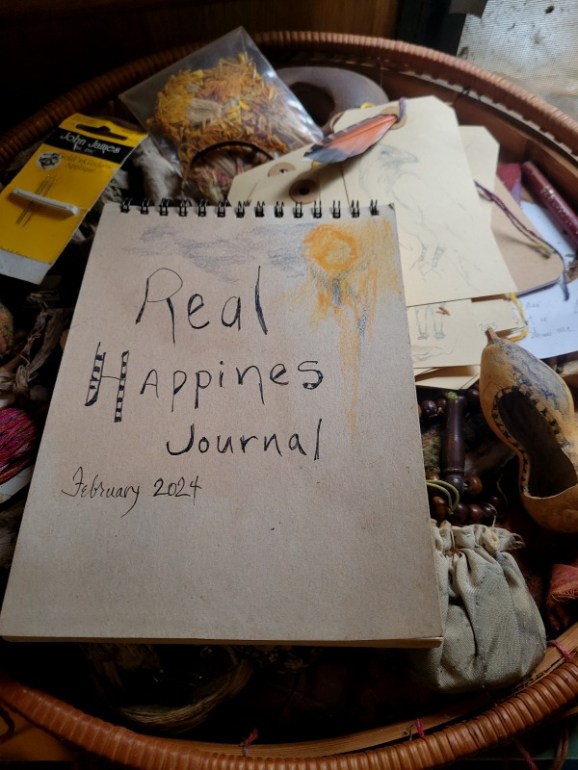 John James
Real
Happines
Journal
February 2024